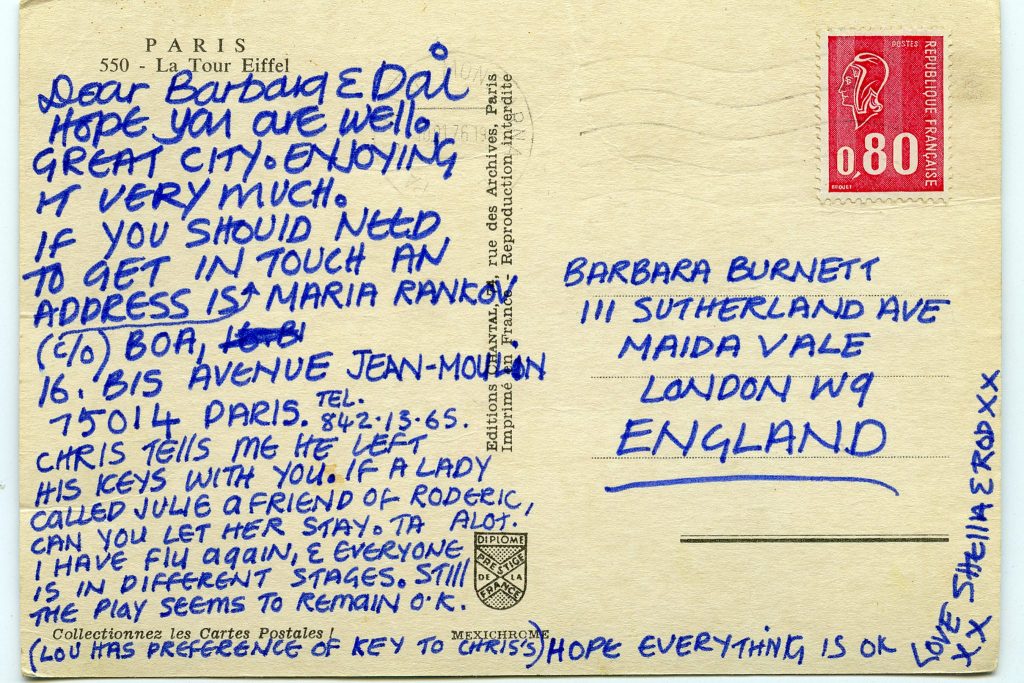 PARIS
550 - La Tour Eiffel
Dear Barbara & Dai
HOPE you are well.
GREAT CITY. ENJOYING
IT VERY MUCH.
IF YOU SHOULD NEED
TO GET IN TOUCH AN
ADDRESS IS MARIA RANKOV
(c/o) BOA,
16. BIS AVENUE JEAN-MOULIN
75014 PARIS. TEL. 842.13.65.
CHRIS TELLS ME HE LEFT
HIS KEYS WITH YOU. IF A LADY
CALLED JULIE a FRIEND OF RODERIC,
CAN YOU LET HER STAY. TA ALOT.
I HAVE Flu again, & EVERYONE
IS IN DIFFERENT STAGES. STIll
THE Play SEEMS TO REMAIN O.K.
Collectionnez les Cartes Postales !
MEXICHROME
(LOU HAS PREFERENCE OF KEY TO CHRIS'S) HOPE EVERYTHING IS OK
LOVE SHEIlA & ROD XX
XX
Editions CHANTAL, rue des Archives, Paris
Imprimé en France - Reproduction interdite
DIPLOME
PRESTIGE
DE LA
FRANCE
POSTES
REPUBLIQUE FRANÇAISE
0,80
BARBARA BURNETT
111 SUTHERLAND AVE
MAIDA VALE
LONDON W9
ENGLAND